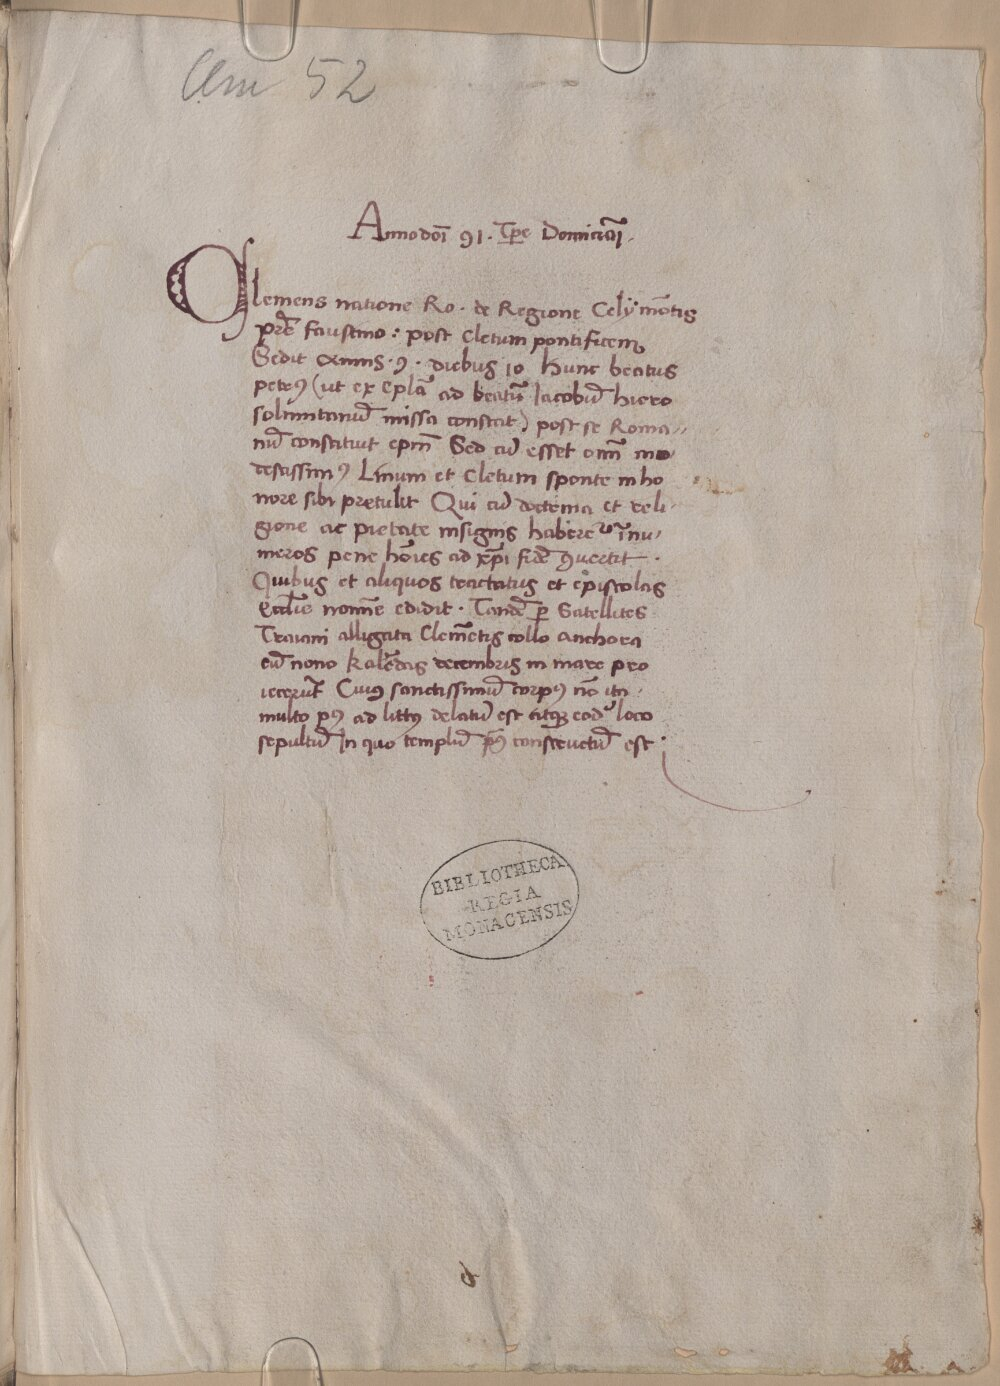 Clm 52
Anno doī 91. Tp̄e Domiciāi.
Clemens natione Ro. de Regione Celij mōtis
pr̄e faustino: post Cletum pontificem
Sedit annis. 9. diebus 10 Hunc beatus
petrꝰ (ut ex ep̄la ad beatū Iacobū hiero
solimitanū missa constat) post se Roma
nū constituit ep̄m Sed cū esset om̄i mo
destissimꝰ Linum et Cletum sponte in ho
nore sibi pretulit Qui cū doctrina et reli
gione ac pietate insignis habereᷣ īnu
meros pene hōies ad xp̄i fidē ꝯuertit.
Quibus et aliquos tractatus et epistolas
Eccl̄ie nomīe edidit. Tandē ꝑ Satellites
Traiani alligata Clemētis collo anchora
cū nono kalēdas decembris in mare pro
iecerūt Cuius sanctissimū corpꝰ nō itā
multo pꝰ ad littꝰ delatū est atqꝫ eodē loco
sepultū In quo templū pꝰ constructū est.
BIBLIOTHECA
REGIA
MONACENSIS